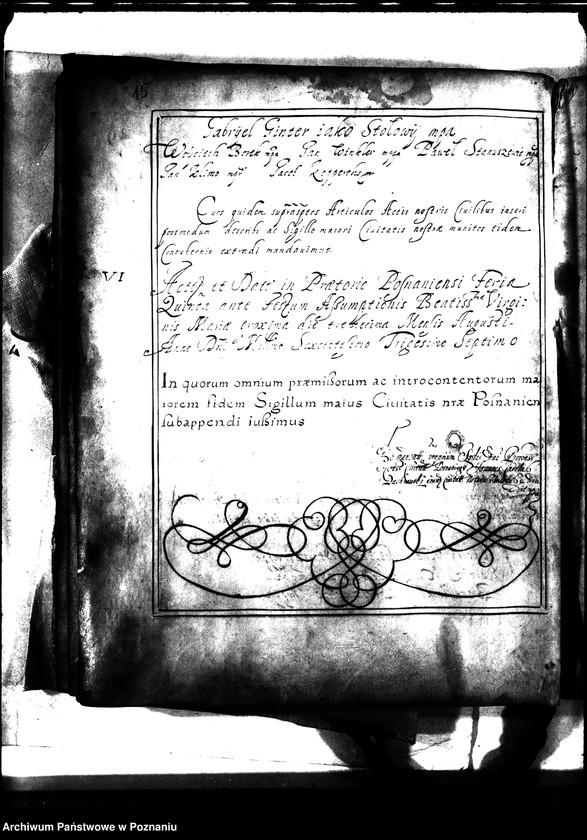 15
Gabryel Ginter iako Stolowÿ mpa
Woiciech Borek mpa Jan Winkler mppa Paweł Staniszewic mpp
Jan Klimo mpp Jacob
Cuos quidem suprasptos Articulos Actis nostris Ciuilibus inseri
postmodum describi ac Sigillo maiori Ciuitatis nostræ munitos eidem
Contubernio extradi mandauimus.
VI
Actū et Datū in Prætorio Posnaniensi Feria
Quinta ante Festum Assumptionis Beatiss Virgi-
nis Mariæ proxima die trettecima Mensis Augusti.
Anno Dni Millimo Sexcentesimo Trigesimo Septimo
In quorum omnium præmissorum ac introcontentorum ma
iorem fidem Sigillum maius Ciuitatis nræ Posnanien
subappendi iussimus
Archiwum Państwowe w Poznaniu